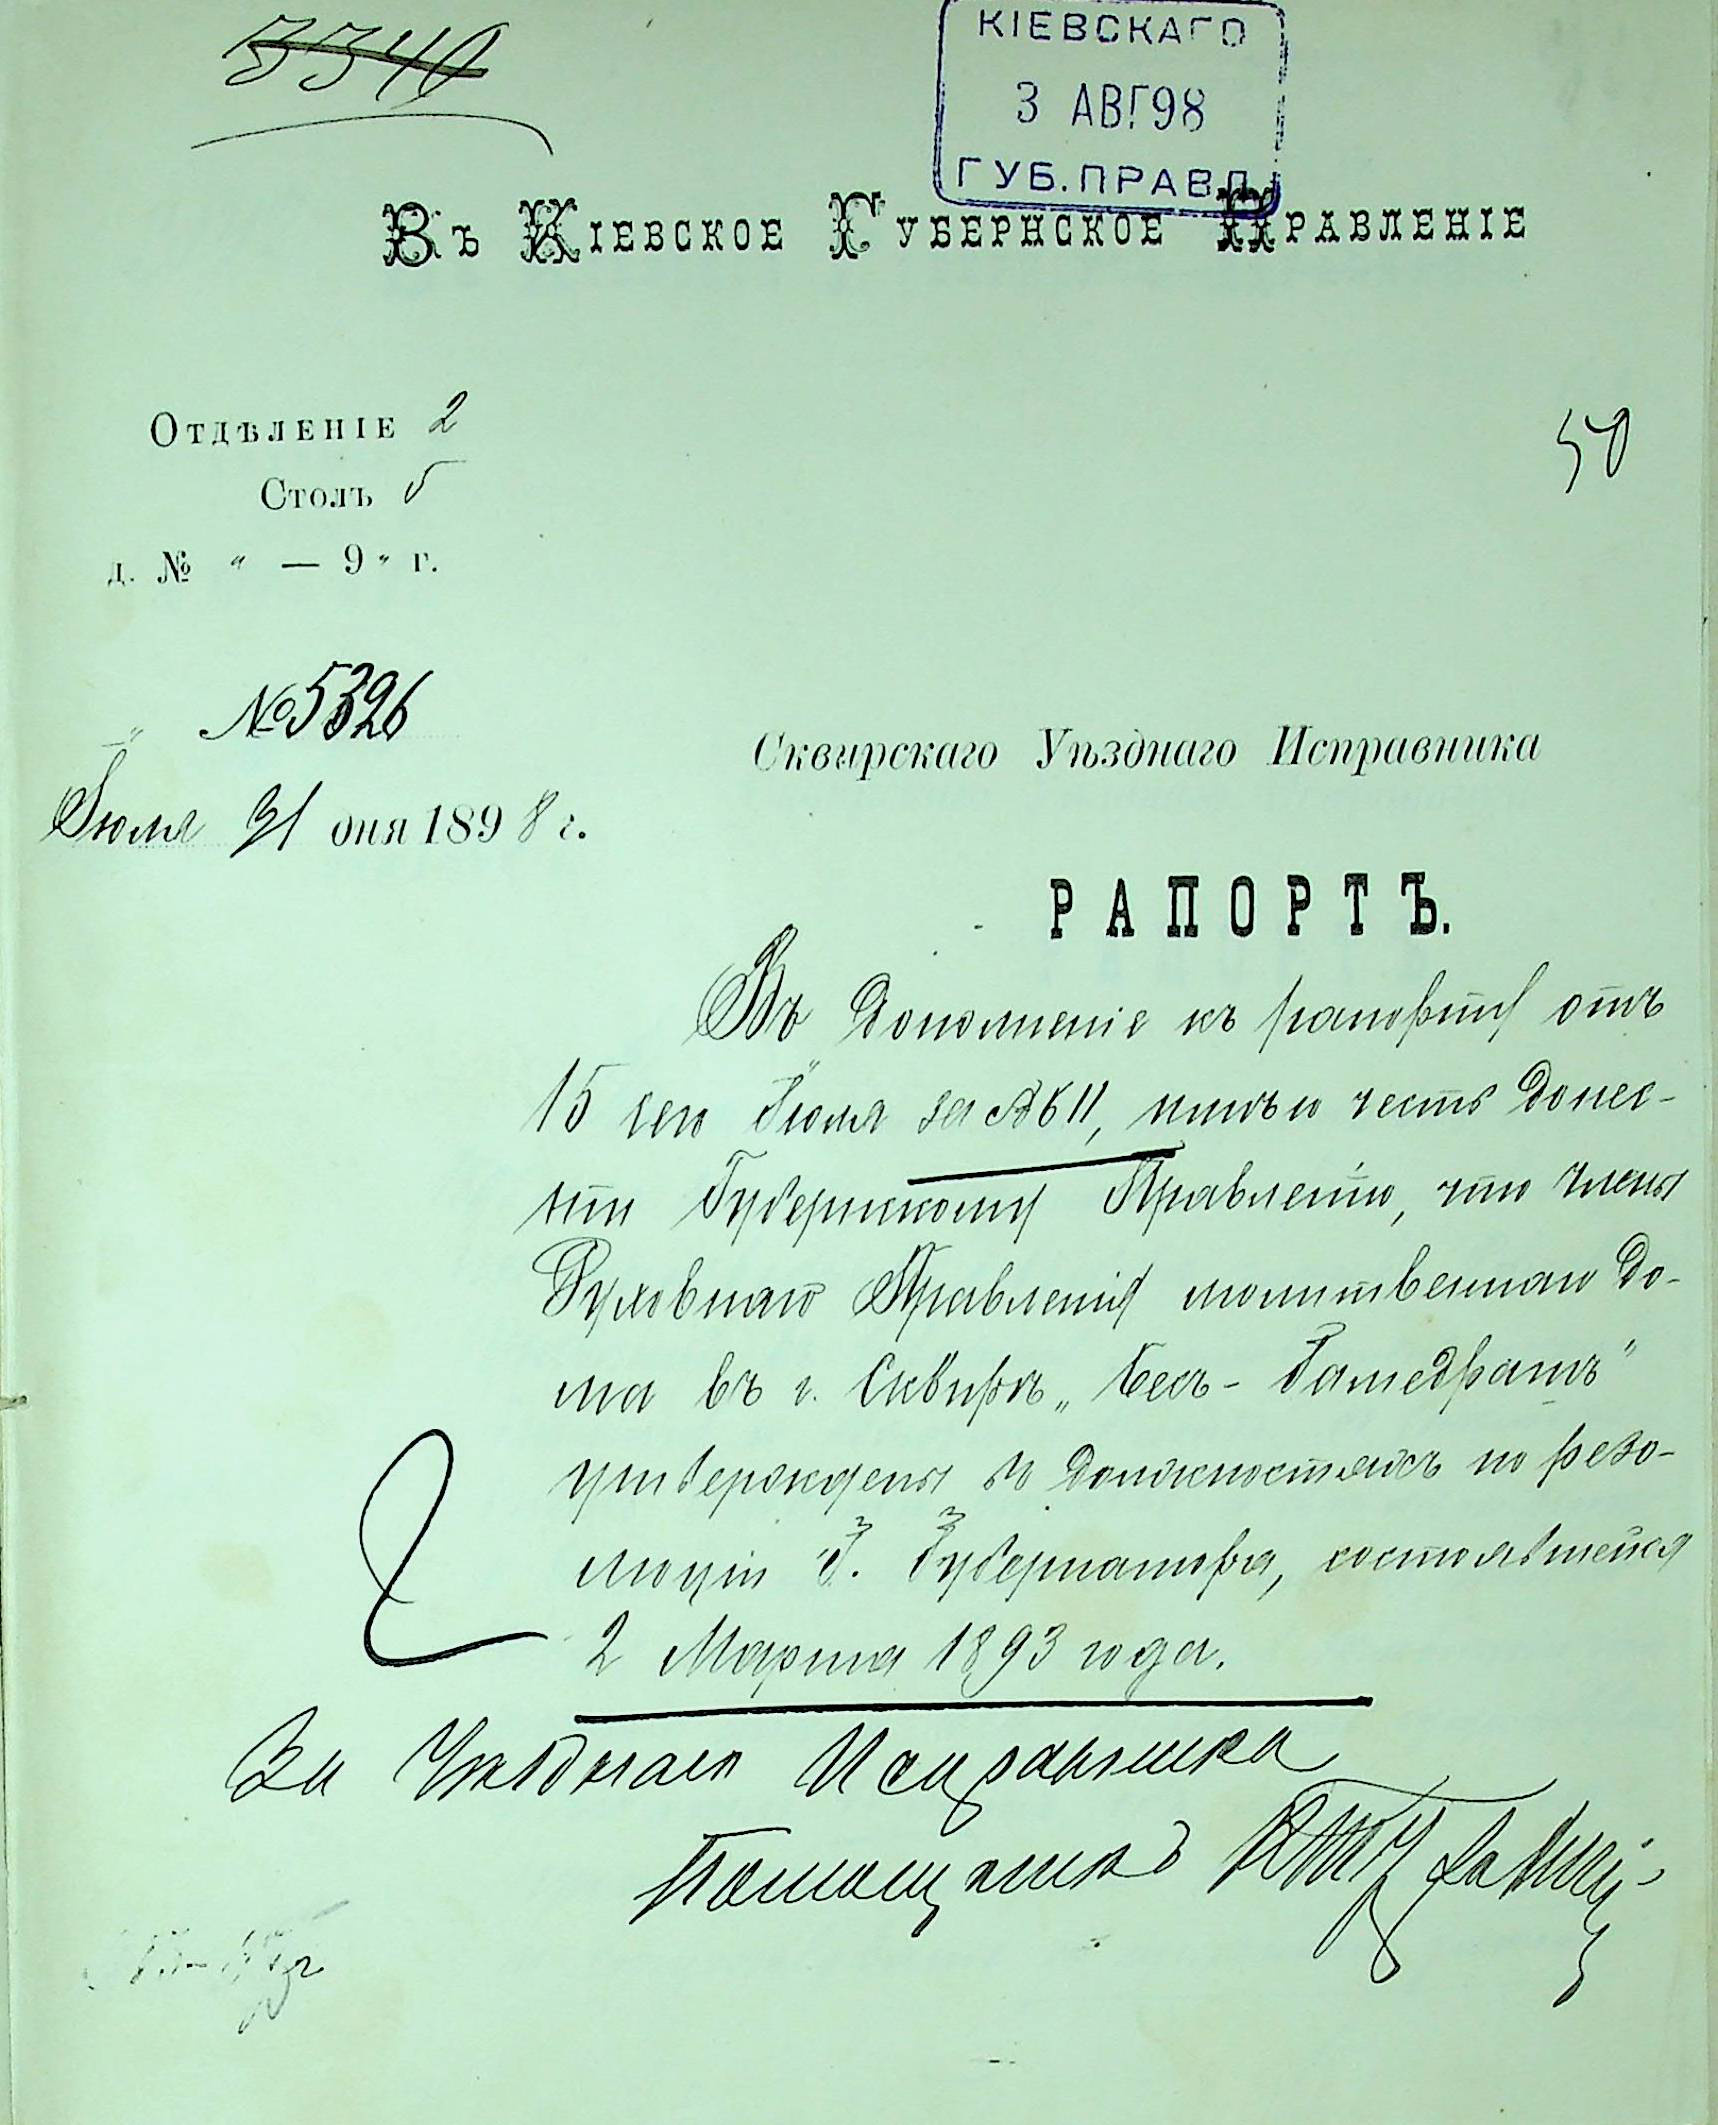 3340
КІЕВСКАГО
3 АВГ 98
ГУБ. ПРАВЛ
Въ Кіевское Губернское Правленіе
Отдѣленіе 2
50
Столъ 5
д. № " — 9 " г.
№ 5326
Сквирскаго Уѣзднаго Исправника
Іюля 31 дня 1898 г.
РАПОРТЪ.
Въ дополненіе къ рапорту отъ
15 сего Іюля за № 611, имѣю честь донес-
ти Губернскому Правленію, что члены
Духовнаго Правленія молитвеннаго до-
ма въ г. Сквирѣ „Бесъ-Гамедрашъ"
утверждены въ должностяхъ по резо-
люціи Г. Губернатора, состоявшейся
2 Марта 1893 года.
За Уѣзднаго Исправника
Помощникъ